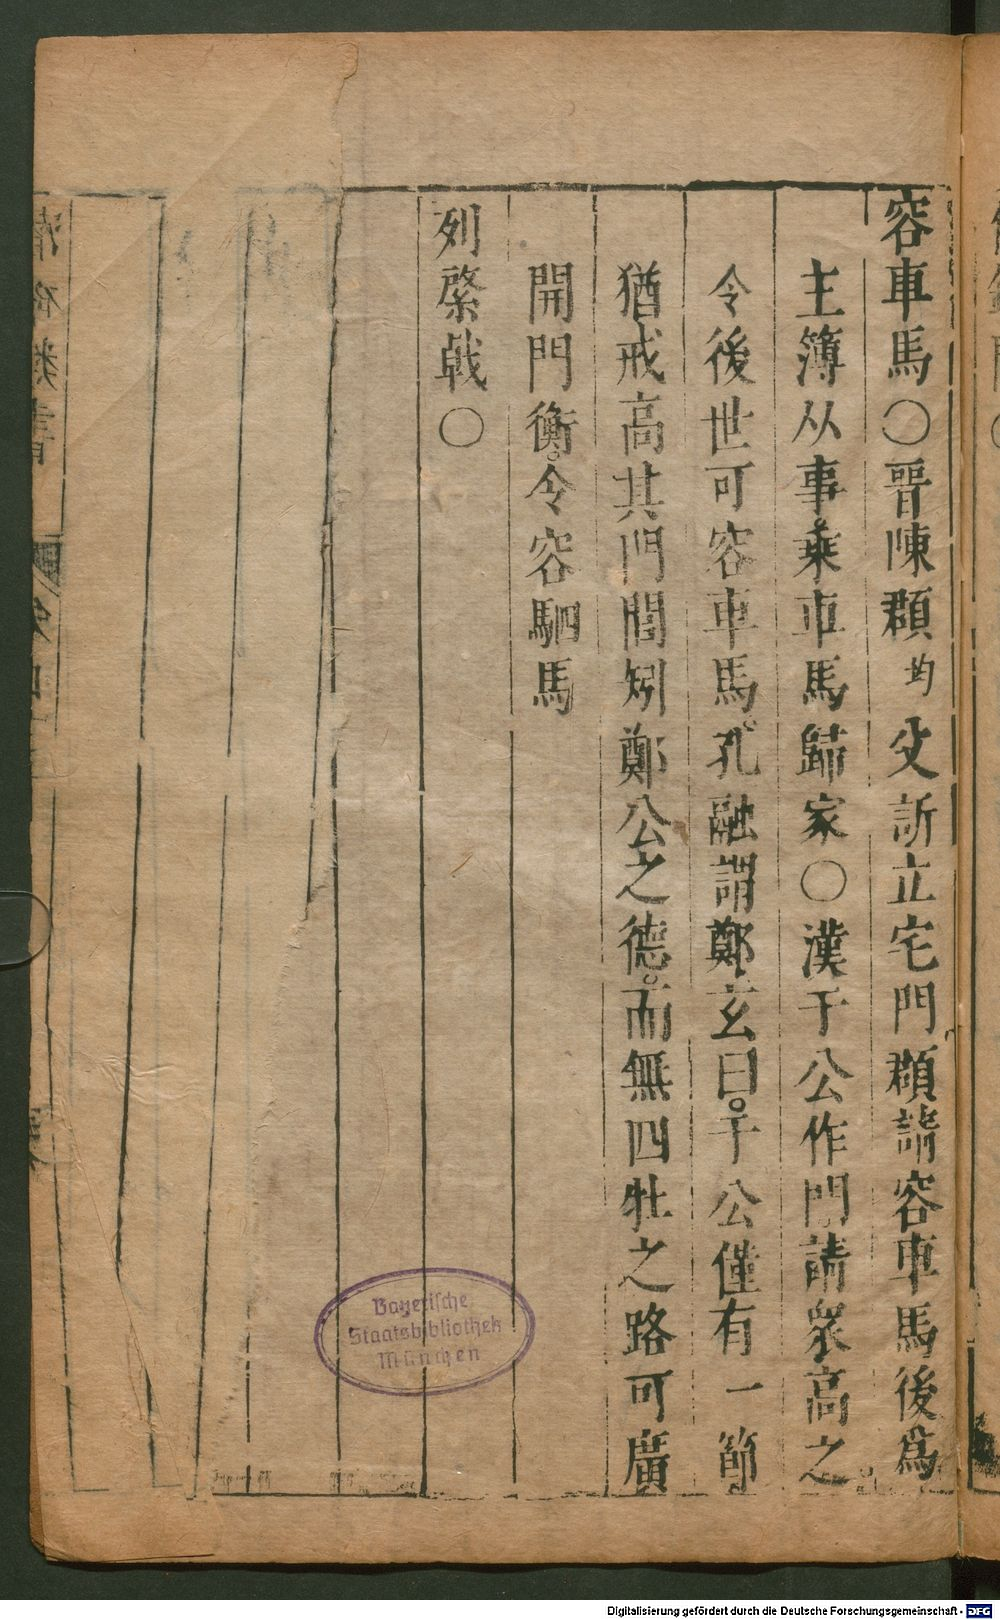 容車馬〇晉陳頵均父訢立宅門頵請容車馬後爲
主簿从事乗車馬歸家〇漢于公作門請衆高之
令後世可容車馬。孔融謂鄭玄曰。于公僅有一節
猶戒高其門閭矧鄭公之德。而無四牡之路可廣
開門衡。令容駟馬
列棨戟〇
Bayerische
Staatsbibliothek
München
Digitalisierung gefördert durch die Deutsche Forschungsgemeinschaft - DFG